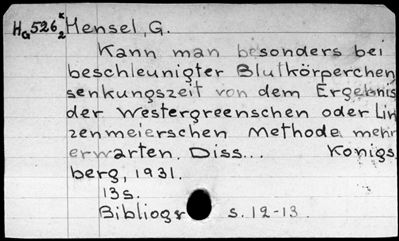 HG526 K2 Hensel, G.
Kann man besonders bei
beschleunigter Blutkörperchen
senkungszeit von dem Ergebnis
der Westergreenschen oder Lin
zenmeierschen Methode mehr
erwarten. Diss... Konigs
berg, 1931.
13s.
Bibliogr s. 12-13.